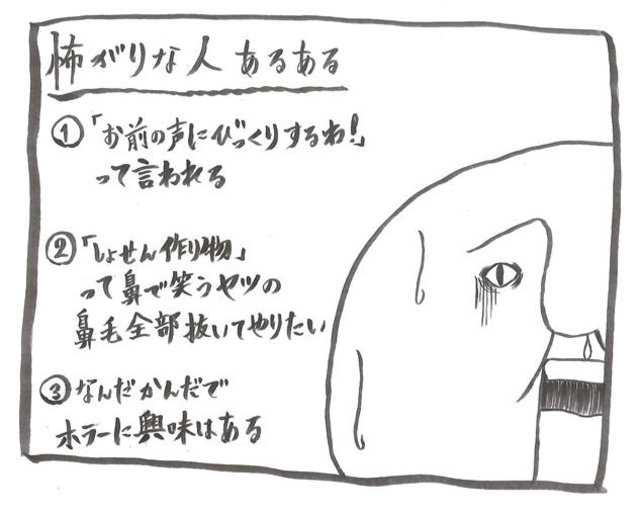 怖がりな人あるある
①「お前の声にびっくりするわ!」
って言われる
②「しょせん作り物」
って鼻で笑うヤツの
鼻毛全部抜いてやりたい
③なんだかんだで
ホラーに興味はある